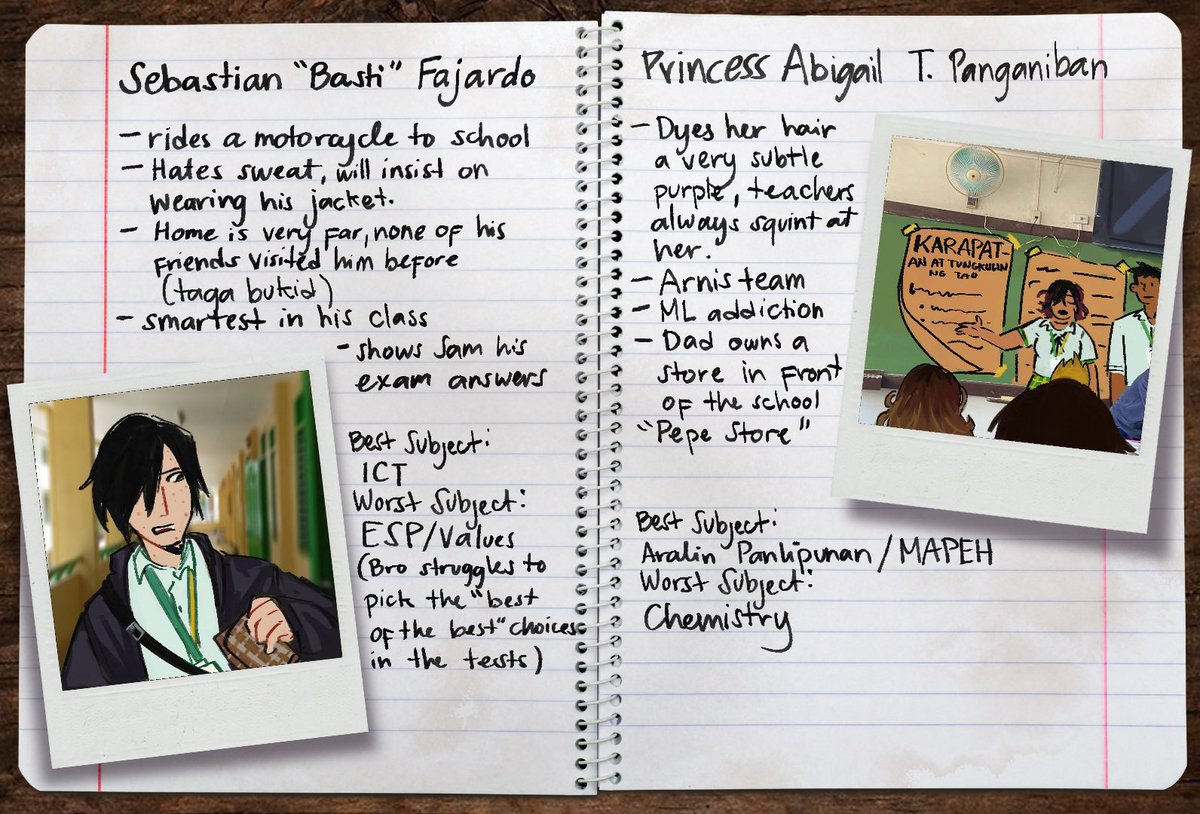 Sebastian "Basti" Fajardo
- rides a motorcycle to school
- Hates sweat, will insist on
wearing his jacket.
- Home is very far, none of his
friends visited him before
(taga bukid)
- smartest in his class
- shows Sam his
exam answers
Best Subject:
ICT
Worst Subject:
ESP/Values
(Bro struggles to
pick the "best
of the best" choices
in the tests)
Princess Abigail T. Panganiban
- Dyes her hair
a very subtle
purple, teachers
always squint at
her.
- Arnis team
- ML addiction
- Dad owns a
store in front
of the school
"Pepe Store"
KARAPAT-
AN AT TUNGKULIN
NG TAO
Best Subject:
Aralin Panlipunan/MAPEH
Worst Subject:
Chemistry